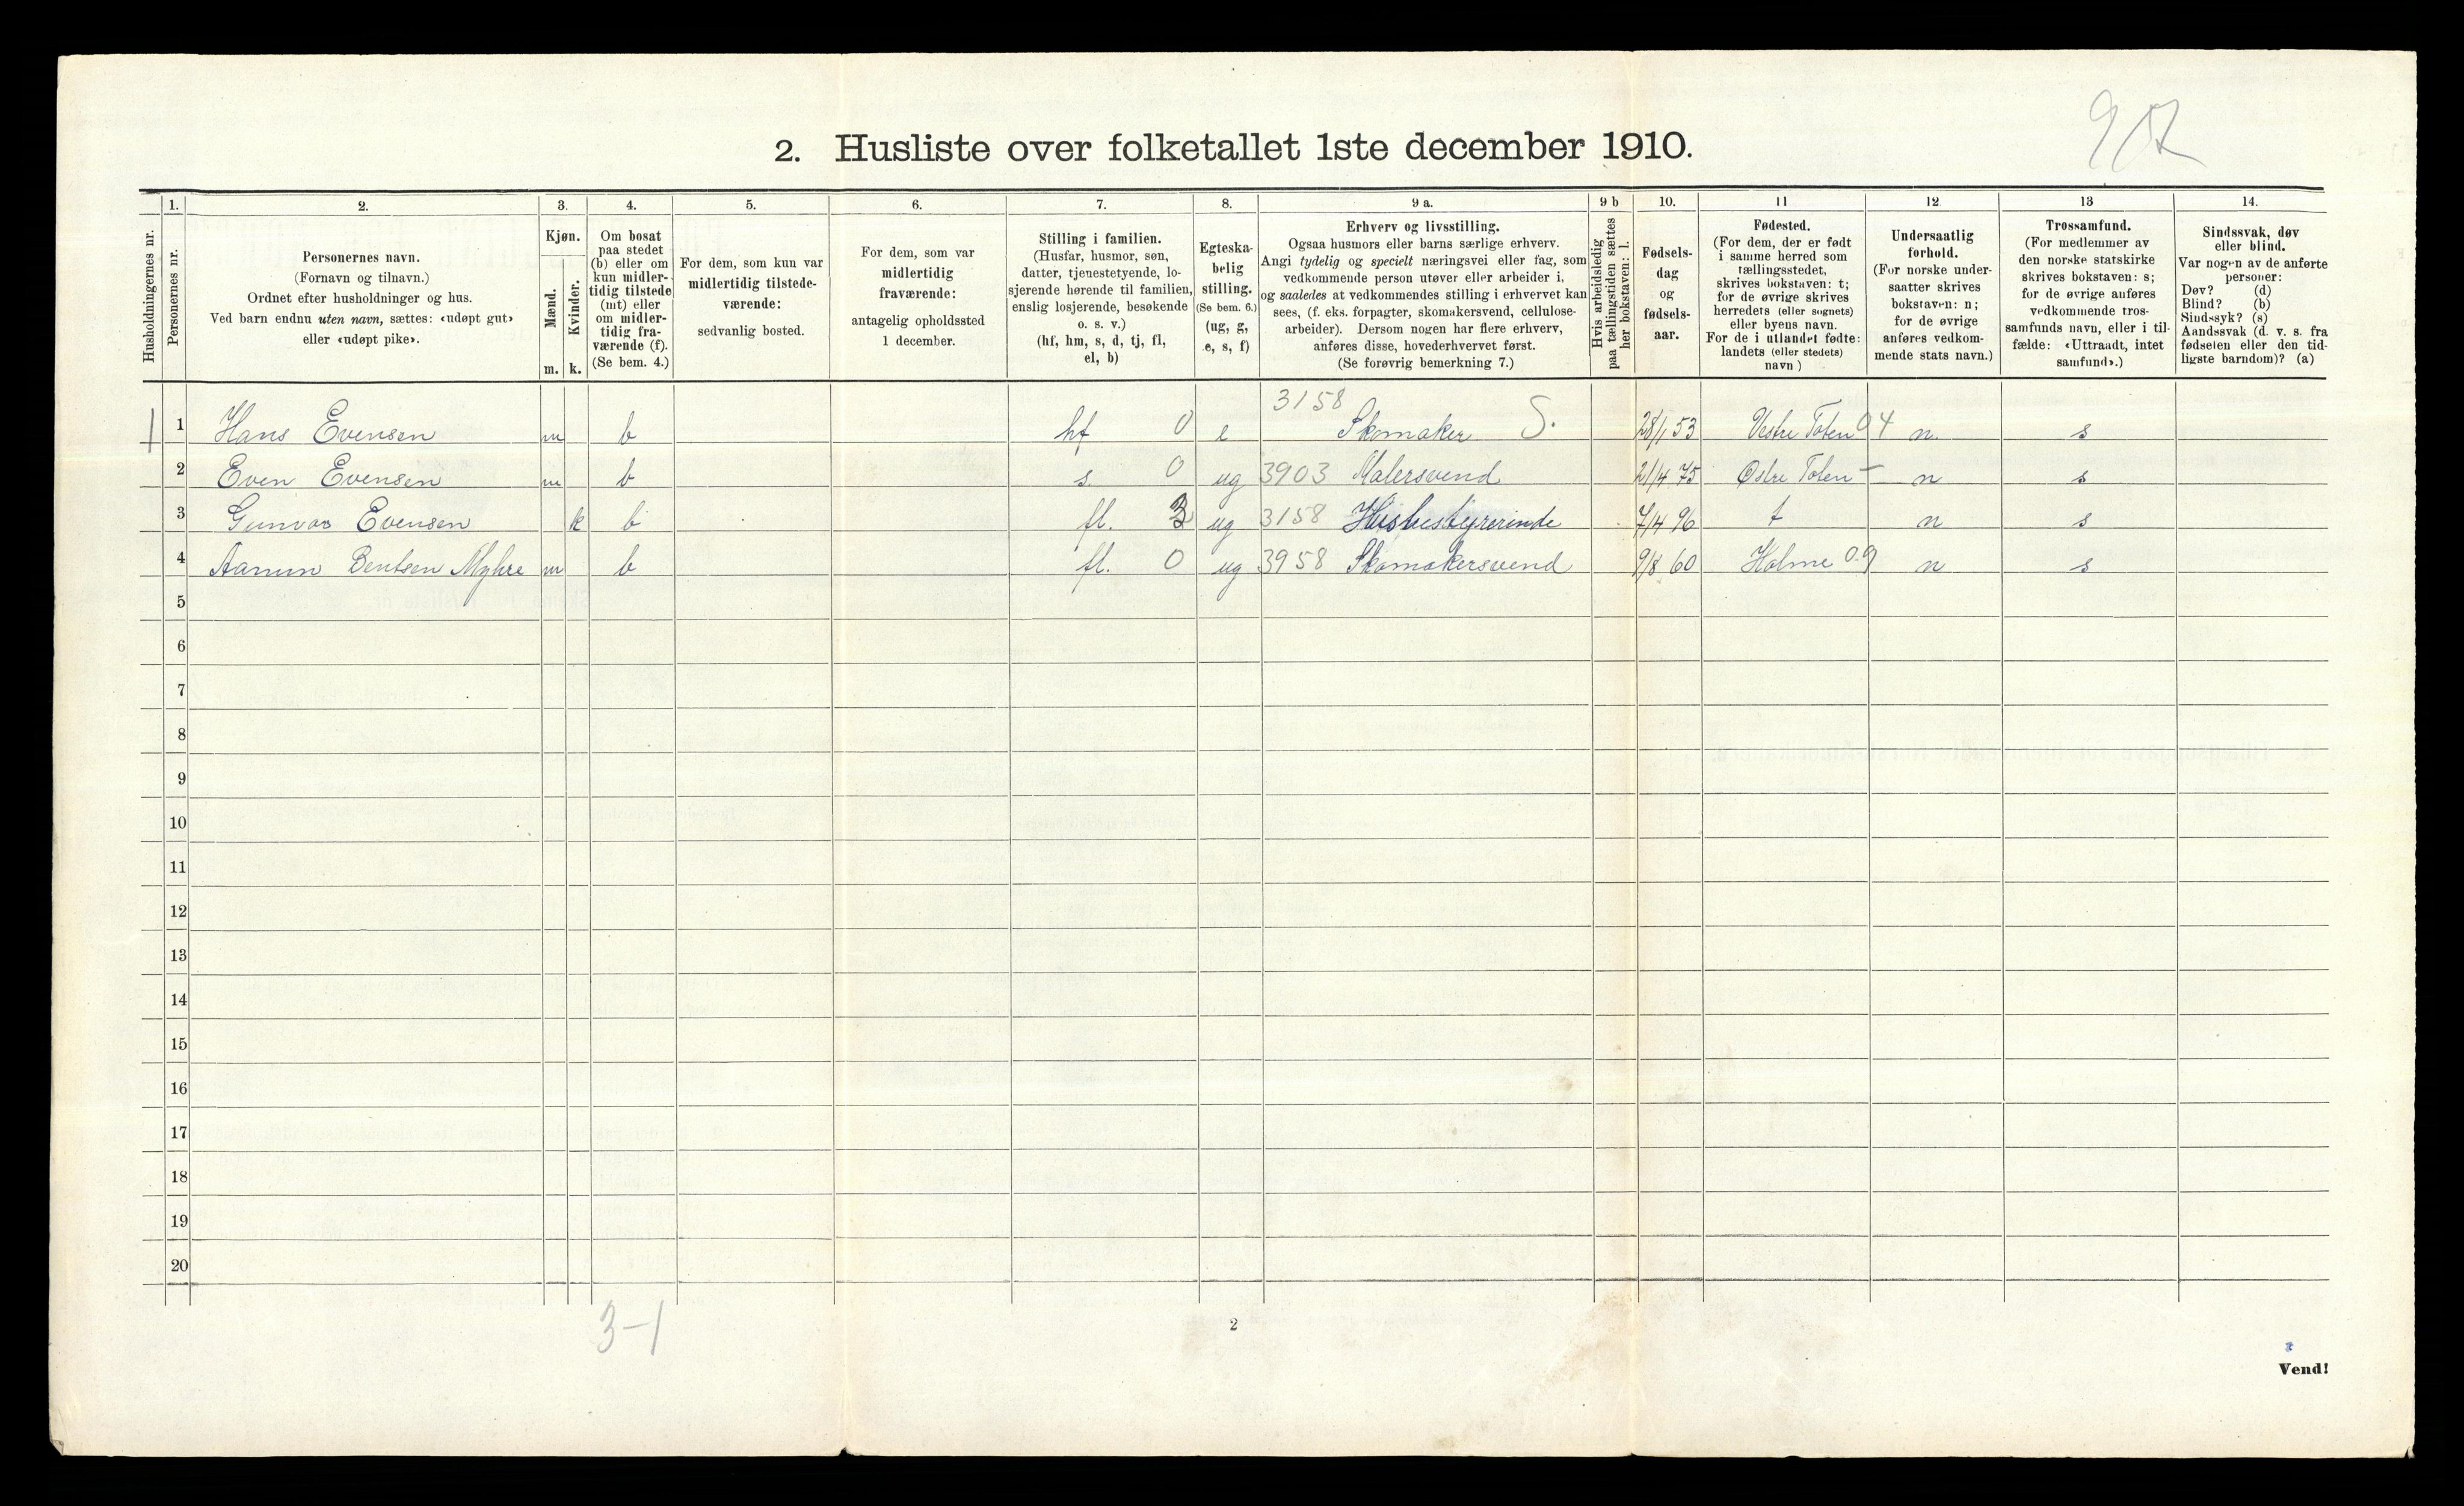 907
2. Husliste over folketallet 1ste december 1910.
Husholdningernes nr.
1. Personernes nr.
2. Personernes navn.
(Fornavn og tilnavn.)
Ordnet efter husholdninger og hus.
Ved barn endnu uten navn, sættes: «udøpt gut»
eller «udøpt pike».
3. Kjøn.
Mænd. Kvinder.
m. k.
4. Om bosat
paa stedet
(b) eller om
kun midler-
tidig tilstede
(mt) eller
om midler-
tidig fra-
værende (f).
(Se bem. 4.)
5. For dem, som kun var
midlertidig tilstede-
værende:
sedvanlig bosted.
6. For dem, som var
midlertidig
fraværende:
antagelig opholdssted
1 december.
7. Stilling i familien.
(Husfar, husmor, søn,
datter, tjenestetyende, lo-
sjerende hørende til familien,
enslig losjerende, besøkende
o. s. v.)
(hf, hm, s, d, tj, fl,
el, b)
8. Egteska-
belig
stilling.
(Se bem. 6.)
(ug, g,
e, s, f)
9 a. Erhverv og livsstilling.
Ogsaa husmors eller barns særlige erhverv.
Angi tydelig og specielt næringsvei eller fag, som
vedkommende person utøver eller arbeider i,
og saaledes at vedkommendes stilling i erhvervet kan
sees, (f. eks. forpagter, skomakersvend, cellulose-
arbeider). Dersom nogen har flere erhverv,
anføres disse, hovederhvervet først.
(Se forøvrig bemerkning 7.)
9 b Hvis arbeidsledig
paa tællingstiden sættes
her bokstaven: l.
10. Fødsels-
dag
og
fødsels-
aar.
11 Fødested.
(For dem, der er født
i samme herred som
tællingsstedet,
skrives bokstaven: t;
for de øvrige skrives
herredets (eller sognets)
eller byens navn.
For de i utlandet fødte:
landets (eller stedets)
navn )
12 Undersaatlig
forhold.
(For norske under-
saatter skrives
bokstaven: n;
for de øvrige
anføres vedkom-
mende stats navn.)
13 Trossamfund.
(For medlemmer av
den norske statskirke
skrives bokstaven: s;
for de øvrige anføres
vedkommende tros-
samfunds navn, eller i til-
fælde: «Uttraadt, intet
samfund».)
14. Sindssvak, døv
eller blind.
Var nogen av de anførte
personer:
Døv? (d)
Blind? (b)
Sindssyk? (s)
Aandssvak (d. v. s. fra
fødselen eller den tid-
ligste barndom)? (a)
1 1 Hans Evensen m b hf 0 e 3158 Skomaker S. 28/1 53 Vestre Toten 04 n. s
2 Even Evensen m b s. 0 ug 3903 Malersvend 21/4 75 Østre Toten - n s
3 Gunvor Evensen k b fl. 3 ug 3158 Husbestyrerinde 7/4 96 t n s
4 Aanun Bentsen Myhre m b fl. 0 ug 3958 Skomakersvend 9/8 60 Holme 09 n s
5
6
7
8
9
10
11
12
13
14
15
16
17
18
19
20
3-1
2
Vend!